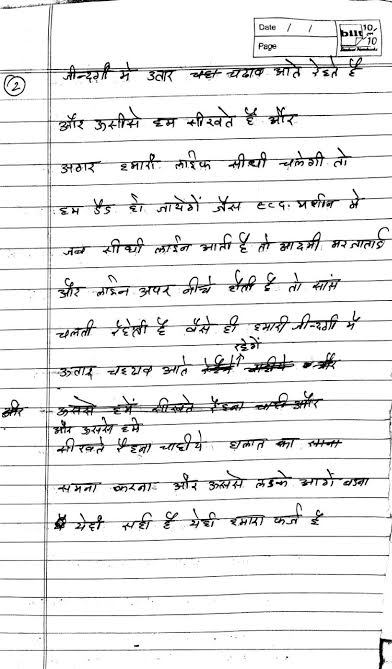 Date / /
Page
bilt 10 on 10
2
जीन्दगी मे उतार चढाव आते रेहते है
और ऊसीसे हम सीखते है और
अगर हमारी लाईफ सीधी चलेगी तो
हम डैड हो जायेगें जैसे ECG. मशीन मे
जब सीधी लाईन आती है तो आदमी मर जाताहै
और लाईन ऊपर नीचे होती है तो सांस
चलती रेहेती है वैसे ही हमारी जीन्दगी मे
रहेगें
ऊतार चढ्याव आते रेहेते चाहीये और
और ऊससे हमें सीखते रेहना चाही और
और ऊससे हमे
सीखते रेहना चाहीये हालात का सामना
समना करना और ऊससे लडके आगे बडना
येही सही है येही हमारा फर्ज है